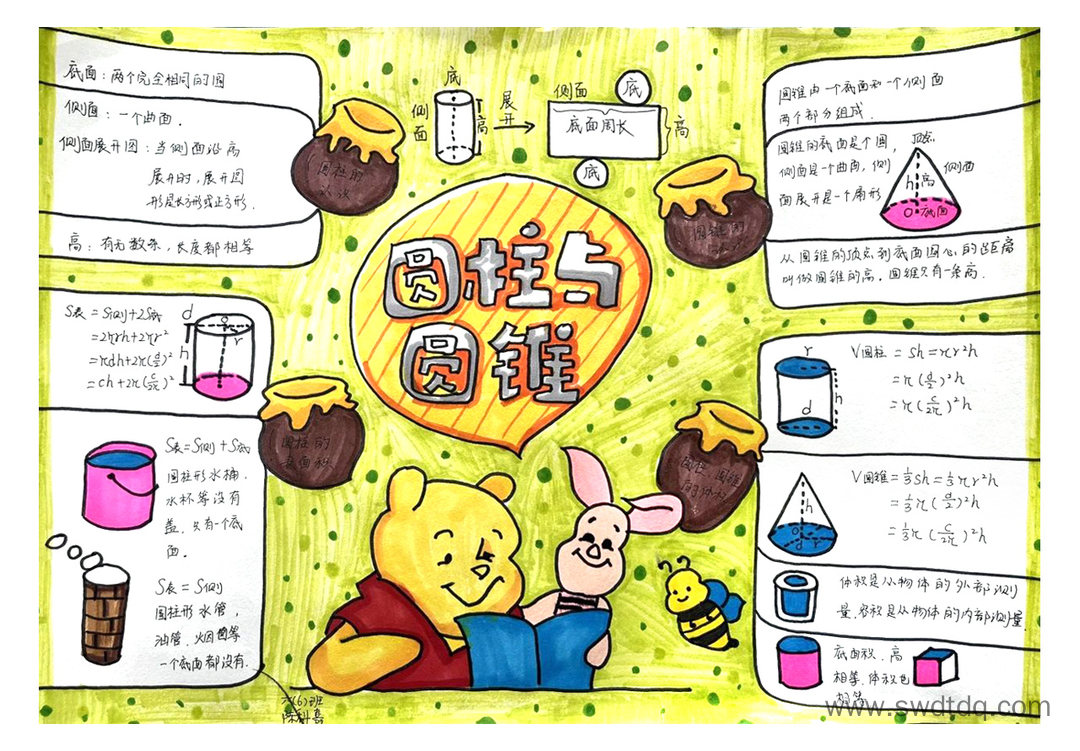 底面：两个完全相同的圆
侧面：一个曲面.
侧面展开图：当侧面沿高
展开时，展开图
形是长方形或正方形.
高：有无数条，长度都相等
圆柱的
认识
底
侧面
高
展开
侧面
底
底面周长
高
底
圆锥由一个底面和一个侧面
两个部分组成.
圆锥的底面是个圆，
侧面是一个曲面，侧
面展开是一个扇形
顶点
h
高
侧面
O
底面
从圆锥的顶点到底面圆心的距离
叫做圆锥的高. 圆锥只有一条高.
圆柱与
圆锥
S表=S侧+2S底
=2πrh+2πr²
=πdh+2π(d/2)²
=ch+2π(C/2π)²
d
O
r
h
圆柱的
表面积
S表=S侧+S底
圆柱形水桶.
水杯等没有
盖. 只有一个底
面.
S表=S侧
圆柱形水管，
油管. 烟囱等
一个底面都没有.
六(6)班
r
d
h
V圆柱=Sh=πr²h
=π(d/2)²h
=π(C/2π)²h
圆柱 圆锥
h
O
d
r
V圆锥=⅓Sh=⅓πr²h
=⅓π(d/2)²h
=⅓π(C/2π)²h
体积是从物体的外部测
量.容积是从物体的内部测量.
底面积. 高
相等.体积也
相等
www.swdtdq.com